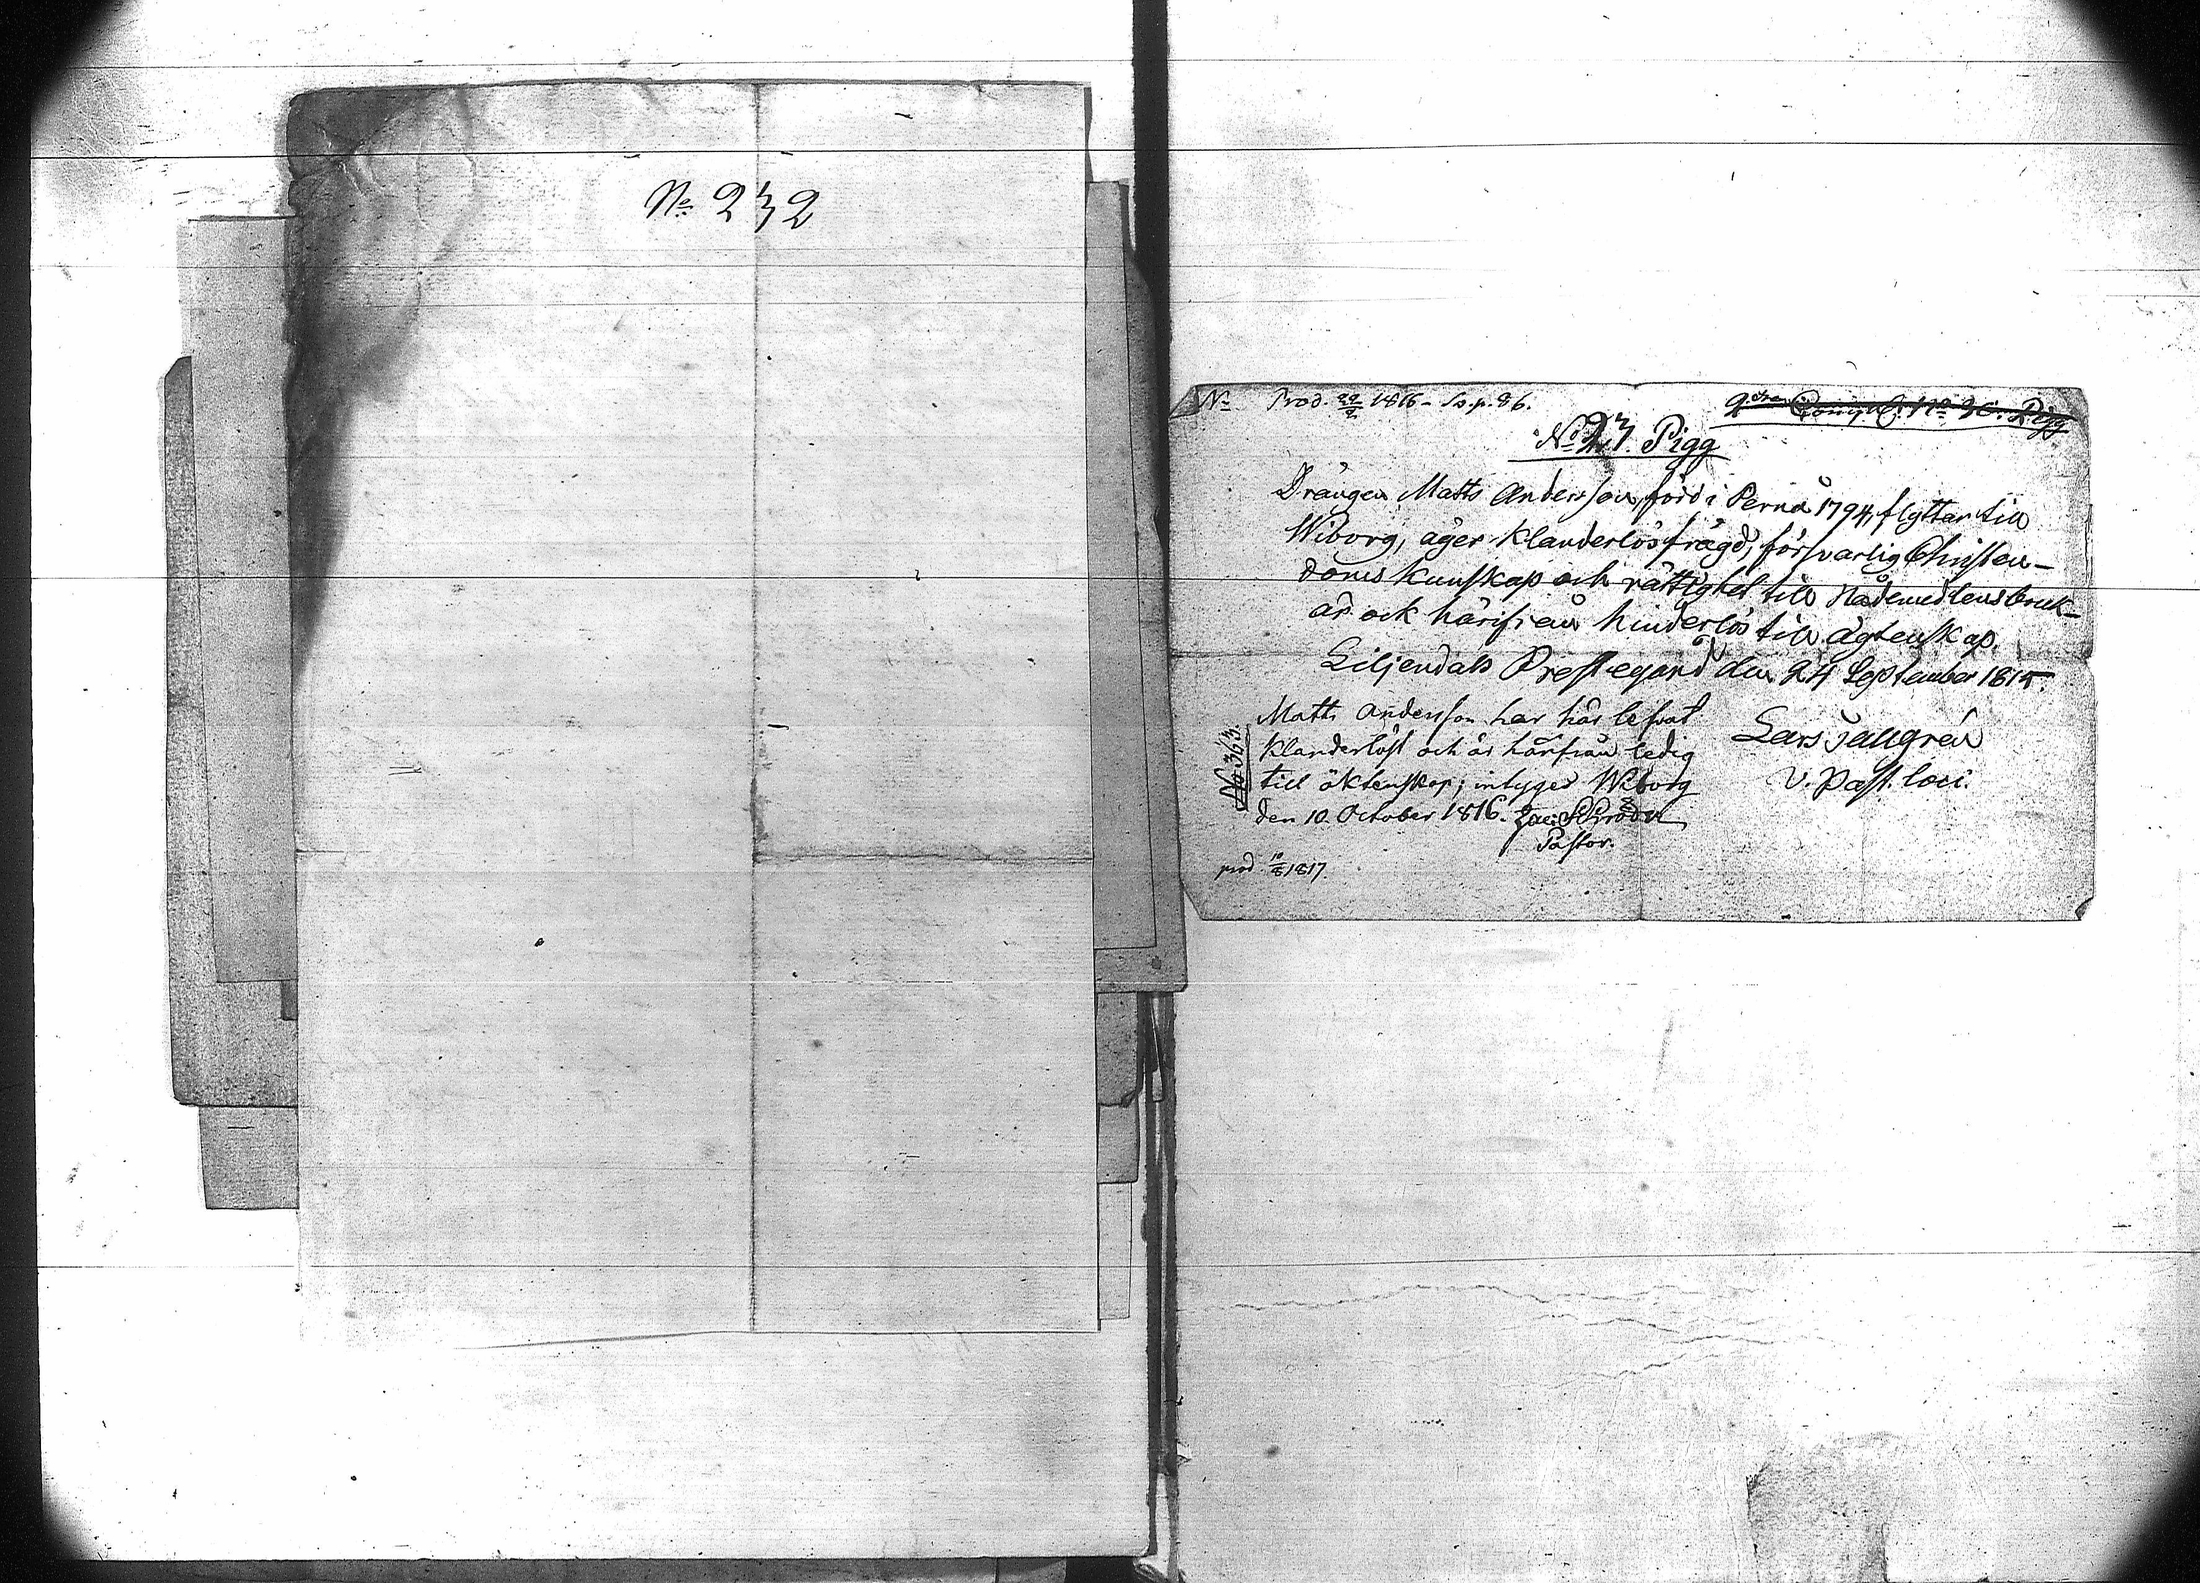 No 232
No Prod. 22/2 1816 - So. p. 86.
2dra Compag: No 26. Pigg
No 27. Pigg
Drängen Matts Andersson, född i Pernå 1794, flyttar till
Wiborg, äger klanderlös frägd, försvarlig Christen-
doms kunskap och rättighet till Nådemedlens bruk-
är ock härifrån hinderlös till ägtenskap.
Liljendals Prestegård den 24 September 1815.
Lars
V. Past. loci.
No 363.
Matts Andersson har här lefvat
klanderlöst och är härifrån ledig
till äktenskap; intygar Wiborg
den 10. October 1816. Zac: Schröder
Pastor.
prod 10/8 1817